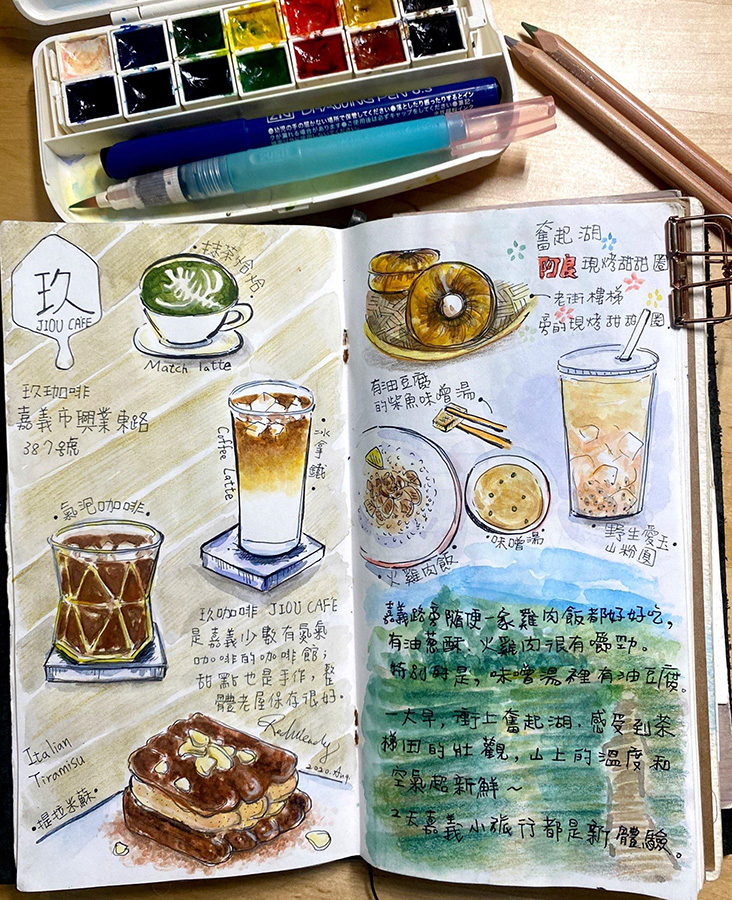 ZIG DRAWING PEN 0.5
玖
JIOU CAFE
抹茶恰恰
Match latte
玖珈啡
嘉義市興業東路
387號
冰拿鐵
Coffee Latte
氣泡咖啡
玖咖啡 JIOU CAFE
是嘉義少數有氮氣
咖啡的咖啡館；
甜點也是手作，整
體老屋保存很好。
2020.Aug.
Italian
Tiramisu
提拉米蘇
奮起湖
阿良現烤甜甜圈
老街樓梯
旁的現烤甜甜圈.
有油豆腐
的柴魚味噌湯
味噌湯
火雞肉飯
野生愛玉
山粉圓
嘉義路旁隨便一家雞肉飯都好好吃，
有油蔥酥、火雞肉很有嚼勁。
特別的是，味噌湯裡有油豆腐。
一大早，衝上奮起湖．感受到茶
梯田的壯觀，山上的溫度和
空氣超新鮮～
2天嘉義小旅行都是新體驗。